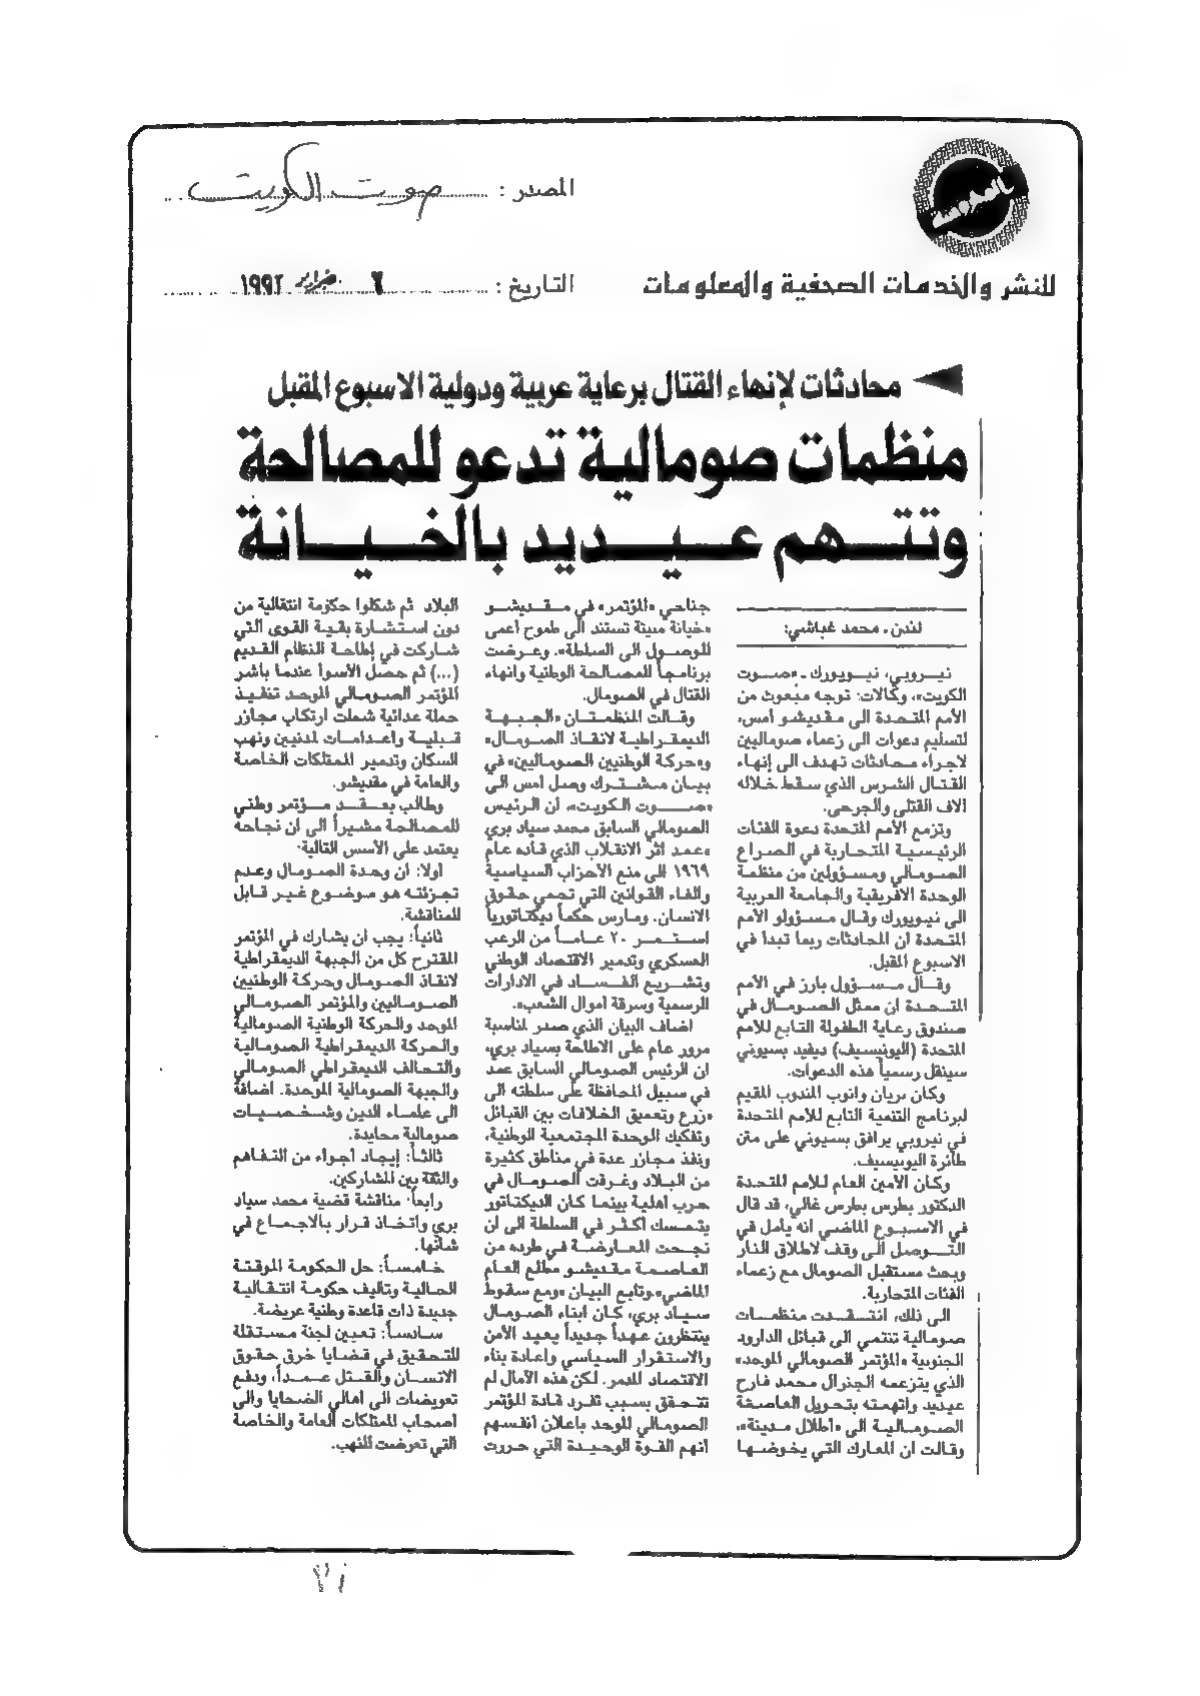 المصدر : صوت الكويت
للنشر والخدمات الصحفية والمعلومات
التاريخ : ٦ فبراير ١٩٩٢
محادثات لإنهاء القتال برعاية عربية ودولية الاسبوع المقبل
منظمات صومالية تدعو للمصالحة
وتتهم عيديد بالخيانة
لندن ـ محمد غباشي:
نيروبي، نيويورك ـ «صوت
الكويت»، وكالات: توجه مبعوث من
الأمم المتحدة الى مقديشو أمس،
لتسليم دعوات الى زعماء صوماليين
لاجراء محادثات تهدف الى إنهاء
القتال الشرس الذي سقط خلاله
آلاف القتلى والجرحى.
وتزمع الأمم المتحدة دعوة الفئات
الرئيسية المتحاربة في الصراع
الصومالي ومسؤولين من منظمة
الوحدة الافريقية والجامعة العربية
الى نيويورك وقال مسؤولو الأمم
المتحدة ان المحادثات ربما تبدأ في
الاسبوع المقبل.
وقال مسؤول بارز في الأمم
المتحدة ان ممثل الصومال في
صندوق رعاية الطفولة التابع للأمم
المتحدة (اليونيسيف) ديفيد بسيوني
سينقل رسمياً هذه الدعوات.
وكان بريان وانوب المندوب المقيم
لبرنامج التنمية التابع للأمم المتحدة
في نيروبي يرافق بسيوني على متن
طائرة اليونيسيف.
وكان الأمين العام للأمم المتحدة
الدكتور بطرس بطرس غالي، قد قال
في الاسبوع الماضي انه يأمل في
التوصل الى وقف لاطلاق النار
وبحث مستقبل الصومال مع زعماء
الفئات المتحاربة.
الى ذلك، انتقدت منظمات
صومالية تنتمي الى قبائل الدارود
الجنوبية «المؤتمر الصومالي الموحد»
الذي يتزعمه الجنرال محمد فارح
عيديد واتهمته بتحويل العاصمة
الصومالية الى «أطلال مدينة»،
وقالت ان المعارك التي يخوضها
جناحي «المؤتمر» في مقديشو
«خيانة مبيتة تستند الى طموح أعمى
للوصول الى السلطة». وعرضت
برنامجاً للمصالحة الوطنية وانهاء
القتال في الصومال.
وقالت المنظمتان «الجبهة
الديمقراطية لانقاذ الصومال»
و«حركة الوطنيين الصوماليين» في
بيان مشترك وصل امس الى
«صوت الكويت»، ان الرئيس
الصومالي السابق محمد سياد بري
«عمد اثر الانقلاب الذي قاده عام
١٩٦٩ الى منع الأحزاب السياسية
والغاء القوانين التي تحمي حقوق
الانسان. ومارس حكماً ديكتاتورياً
استمر ٢٠ عاماً من الرعب
العسكري وتدمير الاقتصاد الوطني
وتشريع الفساد في الادارات
الرسمية وسرقة اموال الشعب».
اضاف البيان الذي صدر لمناسبة
مرور عام على الاطاحة بسياد بري،
ان الرئيس الصومالي السابق عمد
في سبيل المحافظة على سلطته الى
«زرع وتعميق الخلافات بين القبائل
وتفكيك الوحدة المجتمعية الوطنية،
ونفذ مجازر عدة في مناطق كثيرة
من البلاد وغرقت الصومال في
حرب أهلية بينما كان الديكتاتور
يتمسك اكثر في السلطة الى ان
نجحت المعارضة في طرده من
العاصمة مقديشو مطلع العام
الماضي» وتابع البيان «ومع سقوط
سياد بري، كان ابناء الصومال
ينتظرون عهداً جديداً يعيد الأمن
والاستقرار السياسي واعادة بناء
الاقتصاد المدمر. لكن هذه الآمال لم
تتحقق بسبب تفرد قادة المؤتمر
الصومالي الموحد باعلان انفسهم
انهم القوة الوحيدة التي حررت
البلاد ثم شكلوا حكومة انتقالية من
دون استشارة بقية القوى التي
شاركت في إطاحة النظام القديم
(...) ثم حصل الأسوأ عندما باشر
المؤتمر الصومالي الموحد تنفيذ
حملة عدائية شملت ارتكاب مجازر
قبلية واعدامات لمدنيين ونهب
السكان وتدمير الممتلكات الخاصة
والعامة في مقديشو.
وطالب بعقد مؤتمر وطني
للمصالحة مشيراً الى ان نجاحه
يعتمد على الأسس التالية:
اولا: ان وحدة الصومال وعدم
تجزئته هو موضوع غير قابل
للمناقشة.
ثانياً: يجب ان يشارك في المؤتمر
المقترح كل من الجبهة الديمقراطية
لانقاذ الصومال وحركة الوطنيين
الصوماليين والمؤتمر الصومالي
الموحد والحركة الوطنية الصومالية
والحركة الديمقراطية الصومالية
والتحالف الديمقراطي الصومالي
والجبهة الصومالية الموحدة. اضافة
الى علماء الدين وشخصيات
صومالية محايدة.
ثالثاً: إيجاد أجواء من التفاهم
والثقة بين المشاركين.
رابعاً: مناقشة قضية محمد سياد
بري واتخاذ قرار بالاجماع في
شأنها.
خامساً: حل الحكومة الموقتة
الحالية وتأليف حكومة انتقالية
جديدة ذات قاعدة وطنية عريضة.
سادساً: تعيين لجنة مستقلة
للتحقيق في قضايا خرق حقوق
الانسان والقتل عمداً، ودفع
تعويضات الى اهالي الضحايا والى
اصحاب الممتلكات العامة والخاصة
التي تعرضت للنهب.